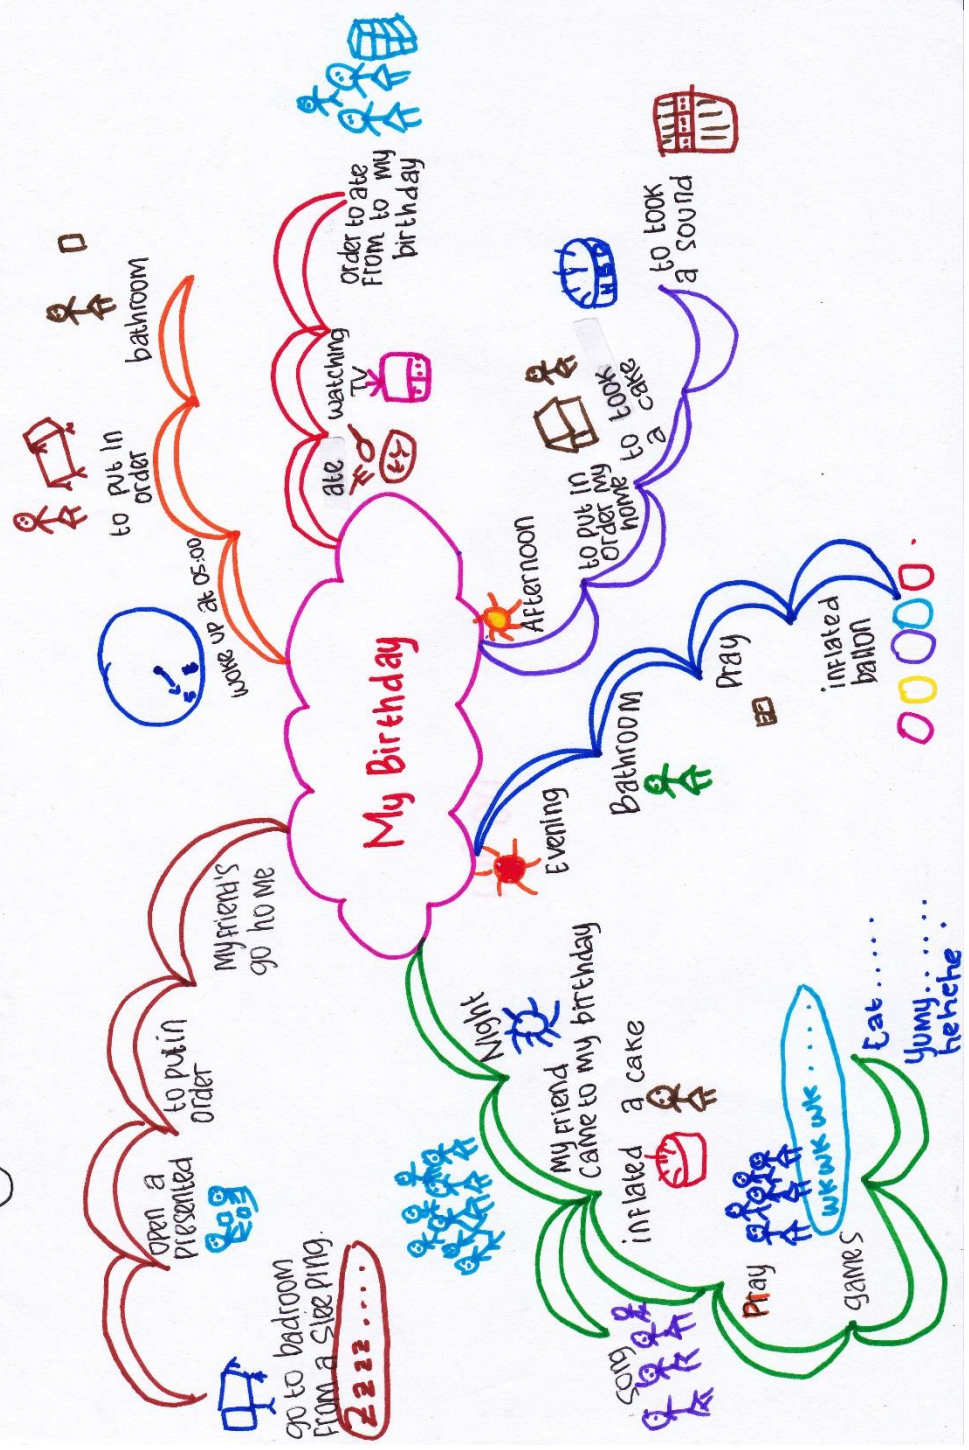 My Birthday
woke up at 05:00
to put in
order
bathroom
ate
watching
TV
order to ate
from to my
birthday
Afternoon
to put in
order my
home
to took
a cake
HBD
to took
a sound
Evening
Bathroom
Pray
inflated
ballon
Night
My friend
came to my birthday
inflated a cake
song
Pray
games
wkwkwk.....
Eat.....
Yumy......
hehehe
My friend's
go home
to put in
order
open a
presented
go to badroom
from a sleeping.
Zzzz....